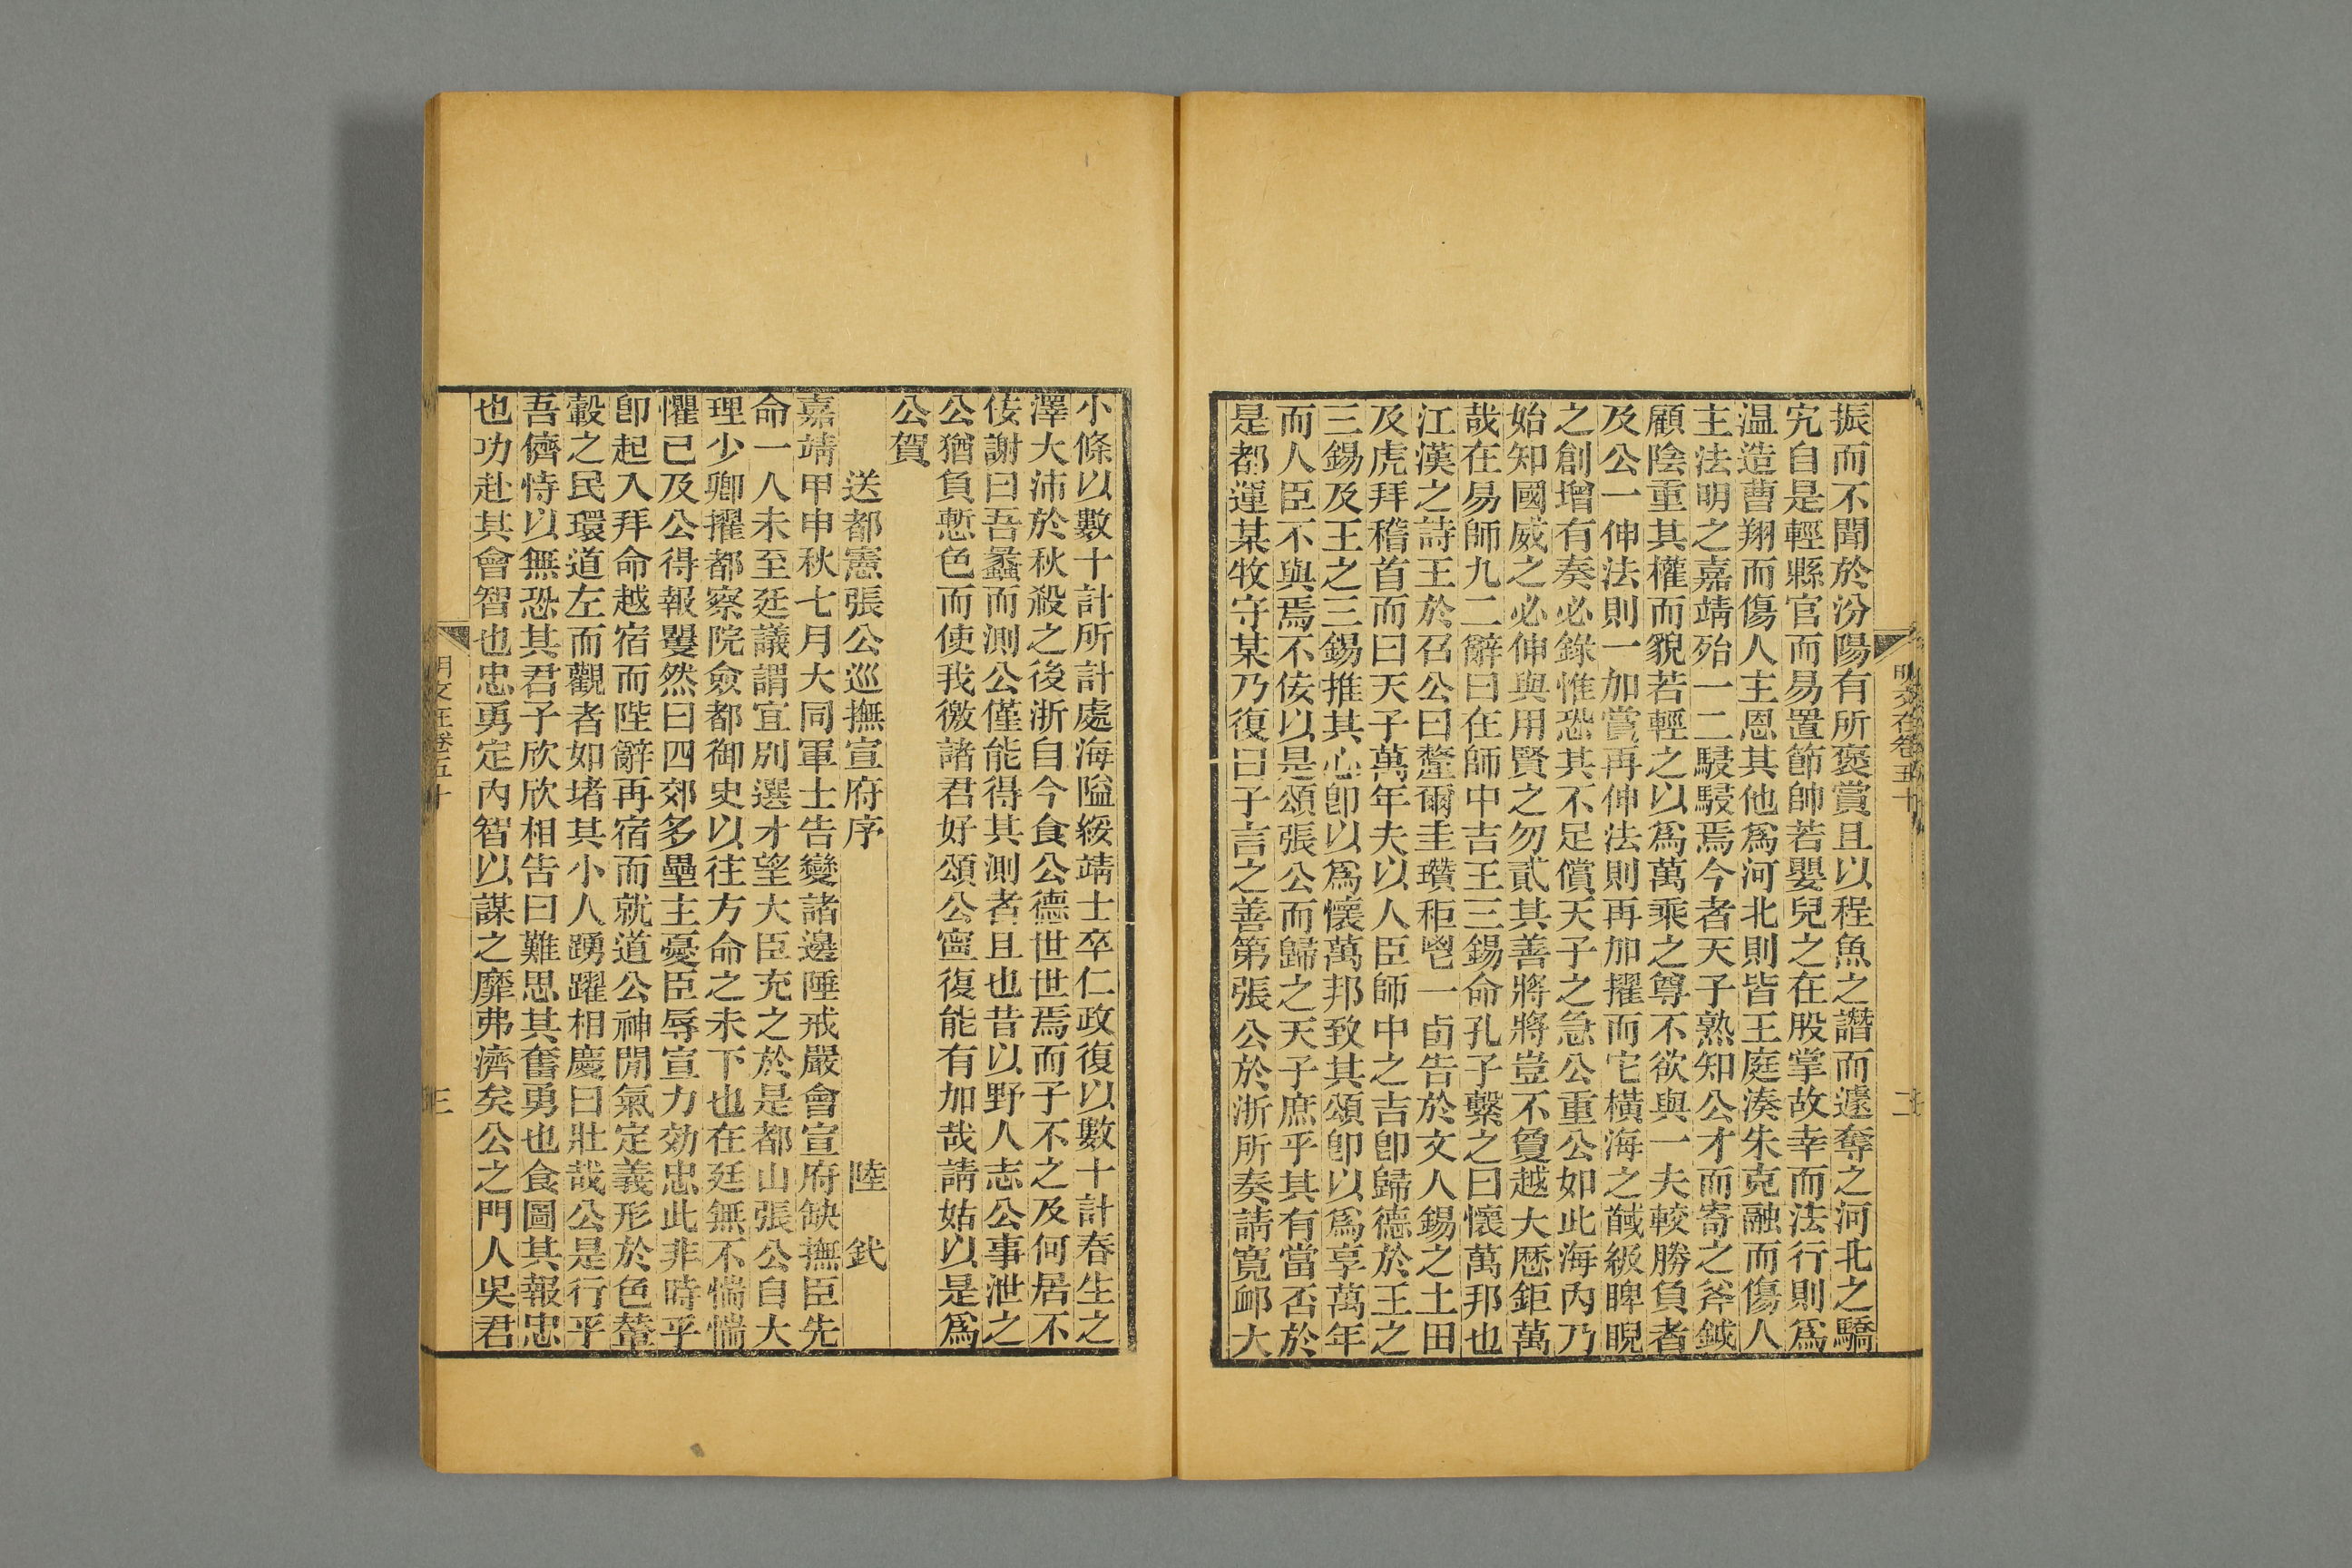 振而不聞於汾陽有所褒賞且以程魚之譖而遽奪之河北之驕
究自是輕縣官而易置節帥若嬰兒之在股掌故幸而法行則爲
温造曹翔而傷人主恩其他爲河北則皆王庭湊朱克融而傷人
主法明之嘉靖殆一二駸駸焉今者天子熟知公才而寄之斧鉞
顧陰重其權而貌若輕之以爲萬乘之尊不欲與一夫較勝負者
及公一伸法則一加賞再伸法則再加擢而宅橫海之馘級睥睨
之創增有奏必錄惟恐其不足償天子之急公重公如此海內乃
始知國威之必伸與用賢之勿貳其善將將豈不敻越大歷鉅萬
哉在易師九二辭曰在師中吉王三錫命孔子繫之曰懷萬邦也
江漢之詩王於召公曰釐爾圭瓚秬鬯一卣告於文人錫之土田
及虎拜稽首而曰天子萬年夫以人臣師中之吉卽歸德於王之
三錫及王之三錫推其心卽以爲懷萬邦致其頌卽以爲享萬年
而人臣不與焉不佞以是頌張公而歸之天子庶乎其有當否於
是都運某牧守某乃復曰子言之善第張公於浙所奏請寬卹大
明文在卷五十
二
小條以數十計所計處海隘綏靖士卒仁政復以數十計春生之
澤大沛於秋殺之後浙自今食公德世世焉而子不之及何居不
佞謝曰吾蠡而測公僅能得其測者且也昔以野人志公事泄之
公猶負慙色而使我徼諸君好頌公寧復能有加哉請姑以是爲
公賀
送都憲張公巡撫宣府序 陸 釴
嘉靖甲申秋七月大同軍士告變諸邊陲戒嚴會宣府缺撫臣先
命一人未至廷議謂宜別選才望大臣充之於是都山張公自大
理少卿擢都察院僉都御史以往方命之未下也在廷無不惴惴
懼已及公得報矍然曰四郊多壘主憂臣辱宣力効忠此非時乎
卽起入拜命越宿而陛辭再宿而就道公神閒氣定義形於色輦
轂之民環道左而觀者如堵其小人踴躍相慶曰壯哉公是行乎
吾儕恃以無恐其君子欣欣相告曰難思其奮勇也食圖其報忠
也功赴其會智也忠勇定內智以謀之靡弗濟矣公之門人吳君
明文在卷五十
三